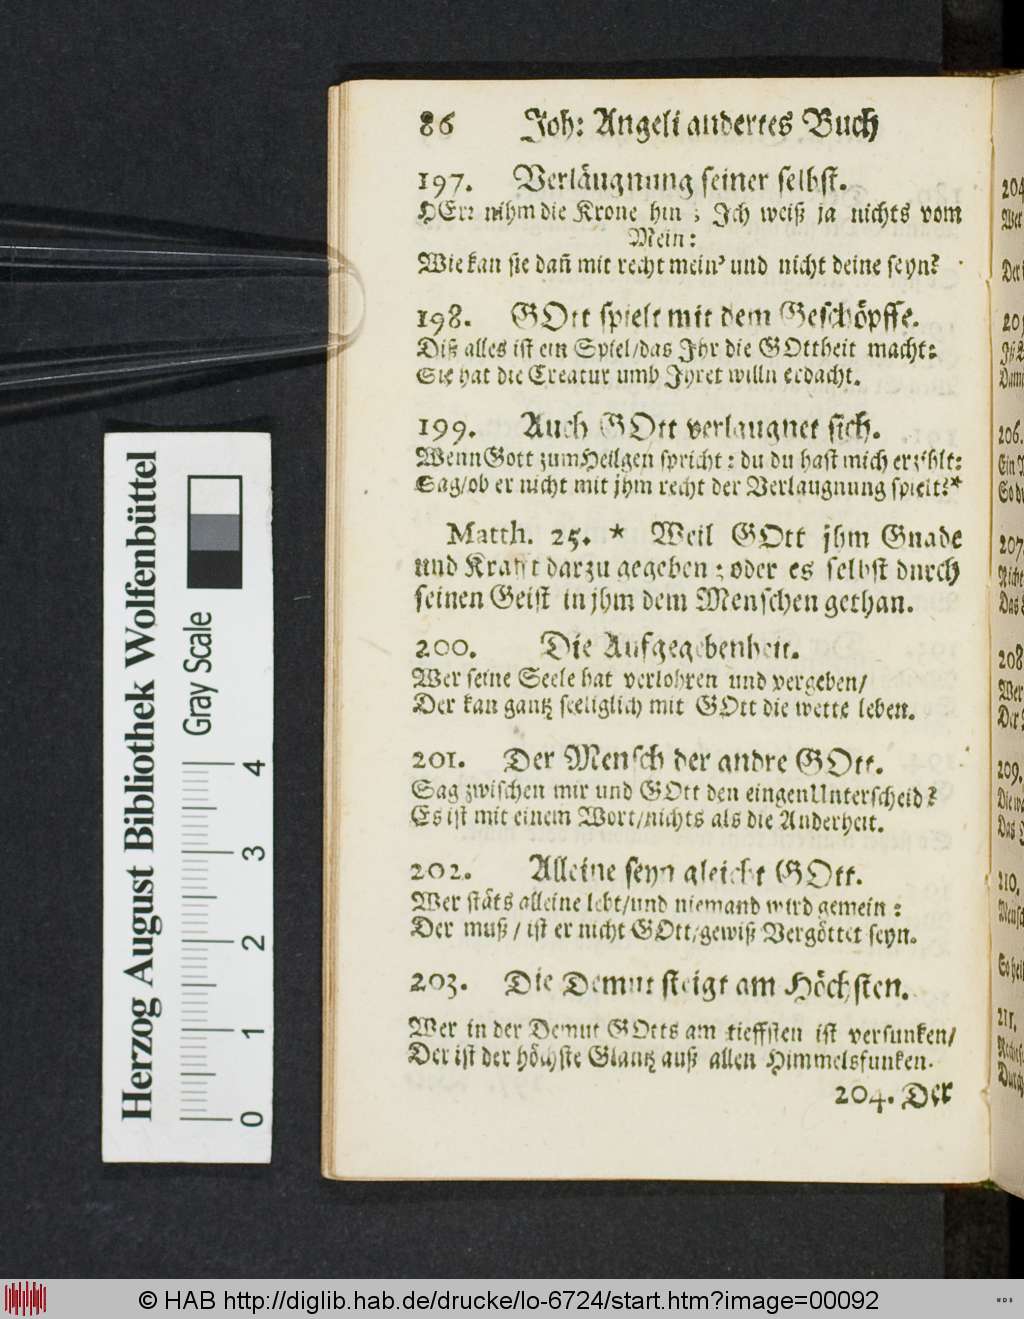 86 Joh: Angeli andertes Buch
197. Verläugnung seiner selbst.
HErr nihm die Krone hin ; Ich weiß ja nichts vom
Mein:
Wie kan sie dañ mit recht mein' und nicht deine seyn?
198. GOtt spielt mit dem Geschöpffe.
Diß alles ist ein Spiel/das Jhr die GOttheit macht:
Sie hat die Creatur umb Jhret willn erdacht.
199. Auch GOtt verlaugnet sich.
Wenn Gott zum Heilgen spricht: du du hast mich erzihlt:
Sag/ob er nicht mit jhm recht der Verlaugnung spielt?*
Matth. 25. * Weil GOtt jhm Gnade
und Krafft darzu gegeben ; oder es selbst durch
seinen Geist in jhm dem Menschen gethan.
200. Die Aufgegebenheit.
Wer seine Seele hat verlohren und vergeben/
Der kan gantz seeliglich mit GOtt die wette leben.
201. Der Mensch der andre GOtt.
Sag zwischen mir und GOtt den eingen Unterscheid?
Es ist mit einem Wort/nichts als die Anderheit.
202. Alleine seyn gleicht GOtt.
Wer stäts alleine lebt/und niemand wird gemein :
Der muß / ist er nicht GOtt/gewiß Vergöttet seyn.
203. Die Demut steigt am Höchsten.
Wer in der Demut GOtts am tieffsten ist versunken/
Der ist der höchste Glantz auß allen Himmelsfunken.
204. Der
Herzog August Bibliothek Wolfenbüttel
Gray Scale
0 1 2 3 4
204
Wer
206.
207.
208
209.
210.
211.
© HAB http://diglib.hab.de/drucke/lo-6724/start.htm?image=00092